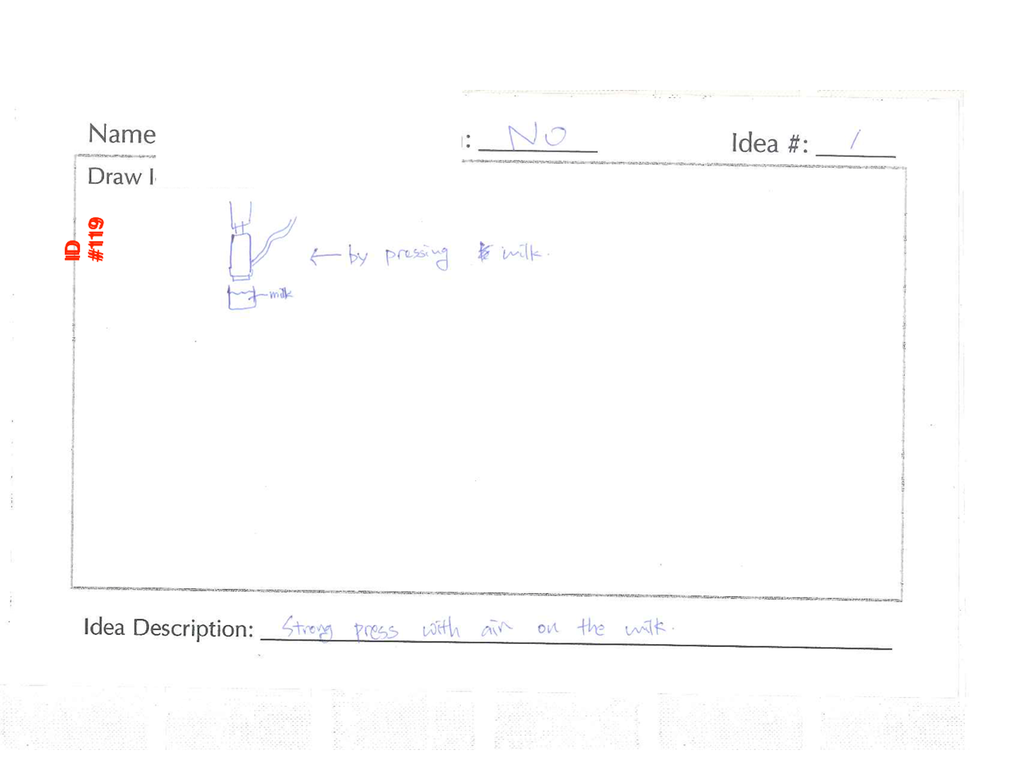 Name : NO Idea #: 1
Draw I
ID
#119
← by pressing milk.
milk
Idea Description: Strong press with air on the milk.